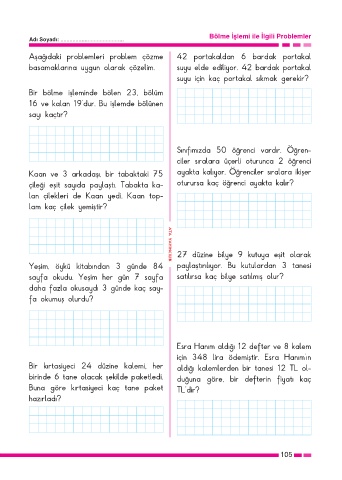 Adı Soyadı: ........................................
Bölme İşlemi ile İlgili Problemler
Aşağıdaki problemleri problem çözme
basamaklarına uygun olarak çözelim.
Bir bölme işleminde bölen 23, bölüm
16 ve kalan 19'dur. Bu işlemde bölünen
sayı kaçtır?
Kaan ve 3 arkadaşı, bir tabaktaki 75
çileği eşit sayıda paylaştı. Tabakta ka-
lan çilekleri de Kaan yedi. Kaan top-
lam kaç çilek yemiştir?
Yeşim, öykü kitabından 3 günde 84
sayfa okudu. Yeşim her gün 7 sayfa
daha fazla okusaydı 3 günde kaç say-
fa okumuş olurdu?
Bir kırtasiyeci 24 düzine kalemi, her
birinde 6 tane olacak şekilde paketledi.
Buna göre kırtasiyeci kaç tane paket
hazırladı?
42 portakaldan 6 bardak portakal
suyu elde ediliyor. 42 bardak portakal
suyu için kaç portakal sıkmak gerekir?
Sınıfımızda 50 öğrenci vardır. Öğren-
ciler sıralara üçerli oturunca 2 öğrenci
ayakta kalıyor. Öğrenciler sıralara ikişer
oturursa kaç öğrenci ayakta kalır?
27 düzine bilye 9 kutuya eşit olarak
paylaştırılıyor. Bu kutulardan 3 tanesi
satılırsa kaç bilye satılmış olur?
Esra Hanım aldığı 12 defter ve 8 kalem
için 348 lira ödemiştir. Esra Hanımın
aldığı kalemlerden bir tanesi 12 TL ol-
duğuna göre, bir defterin fiyatı kaç
TL'dir?
105